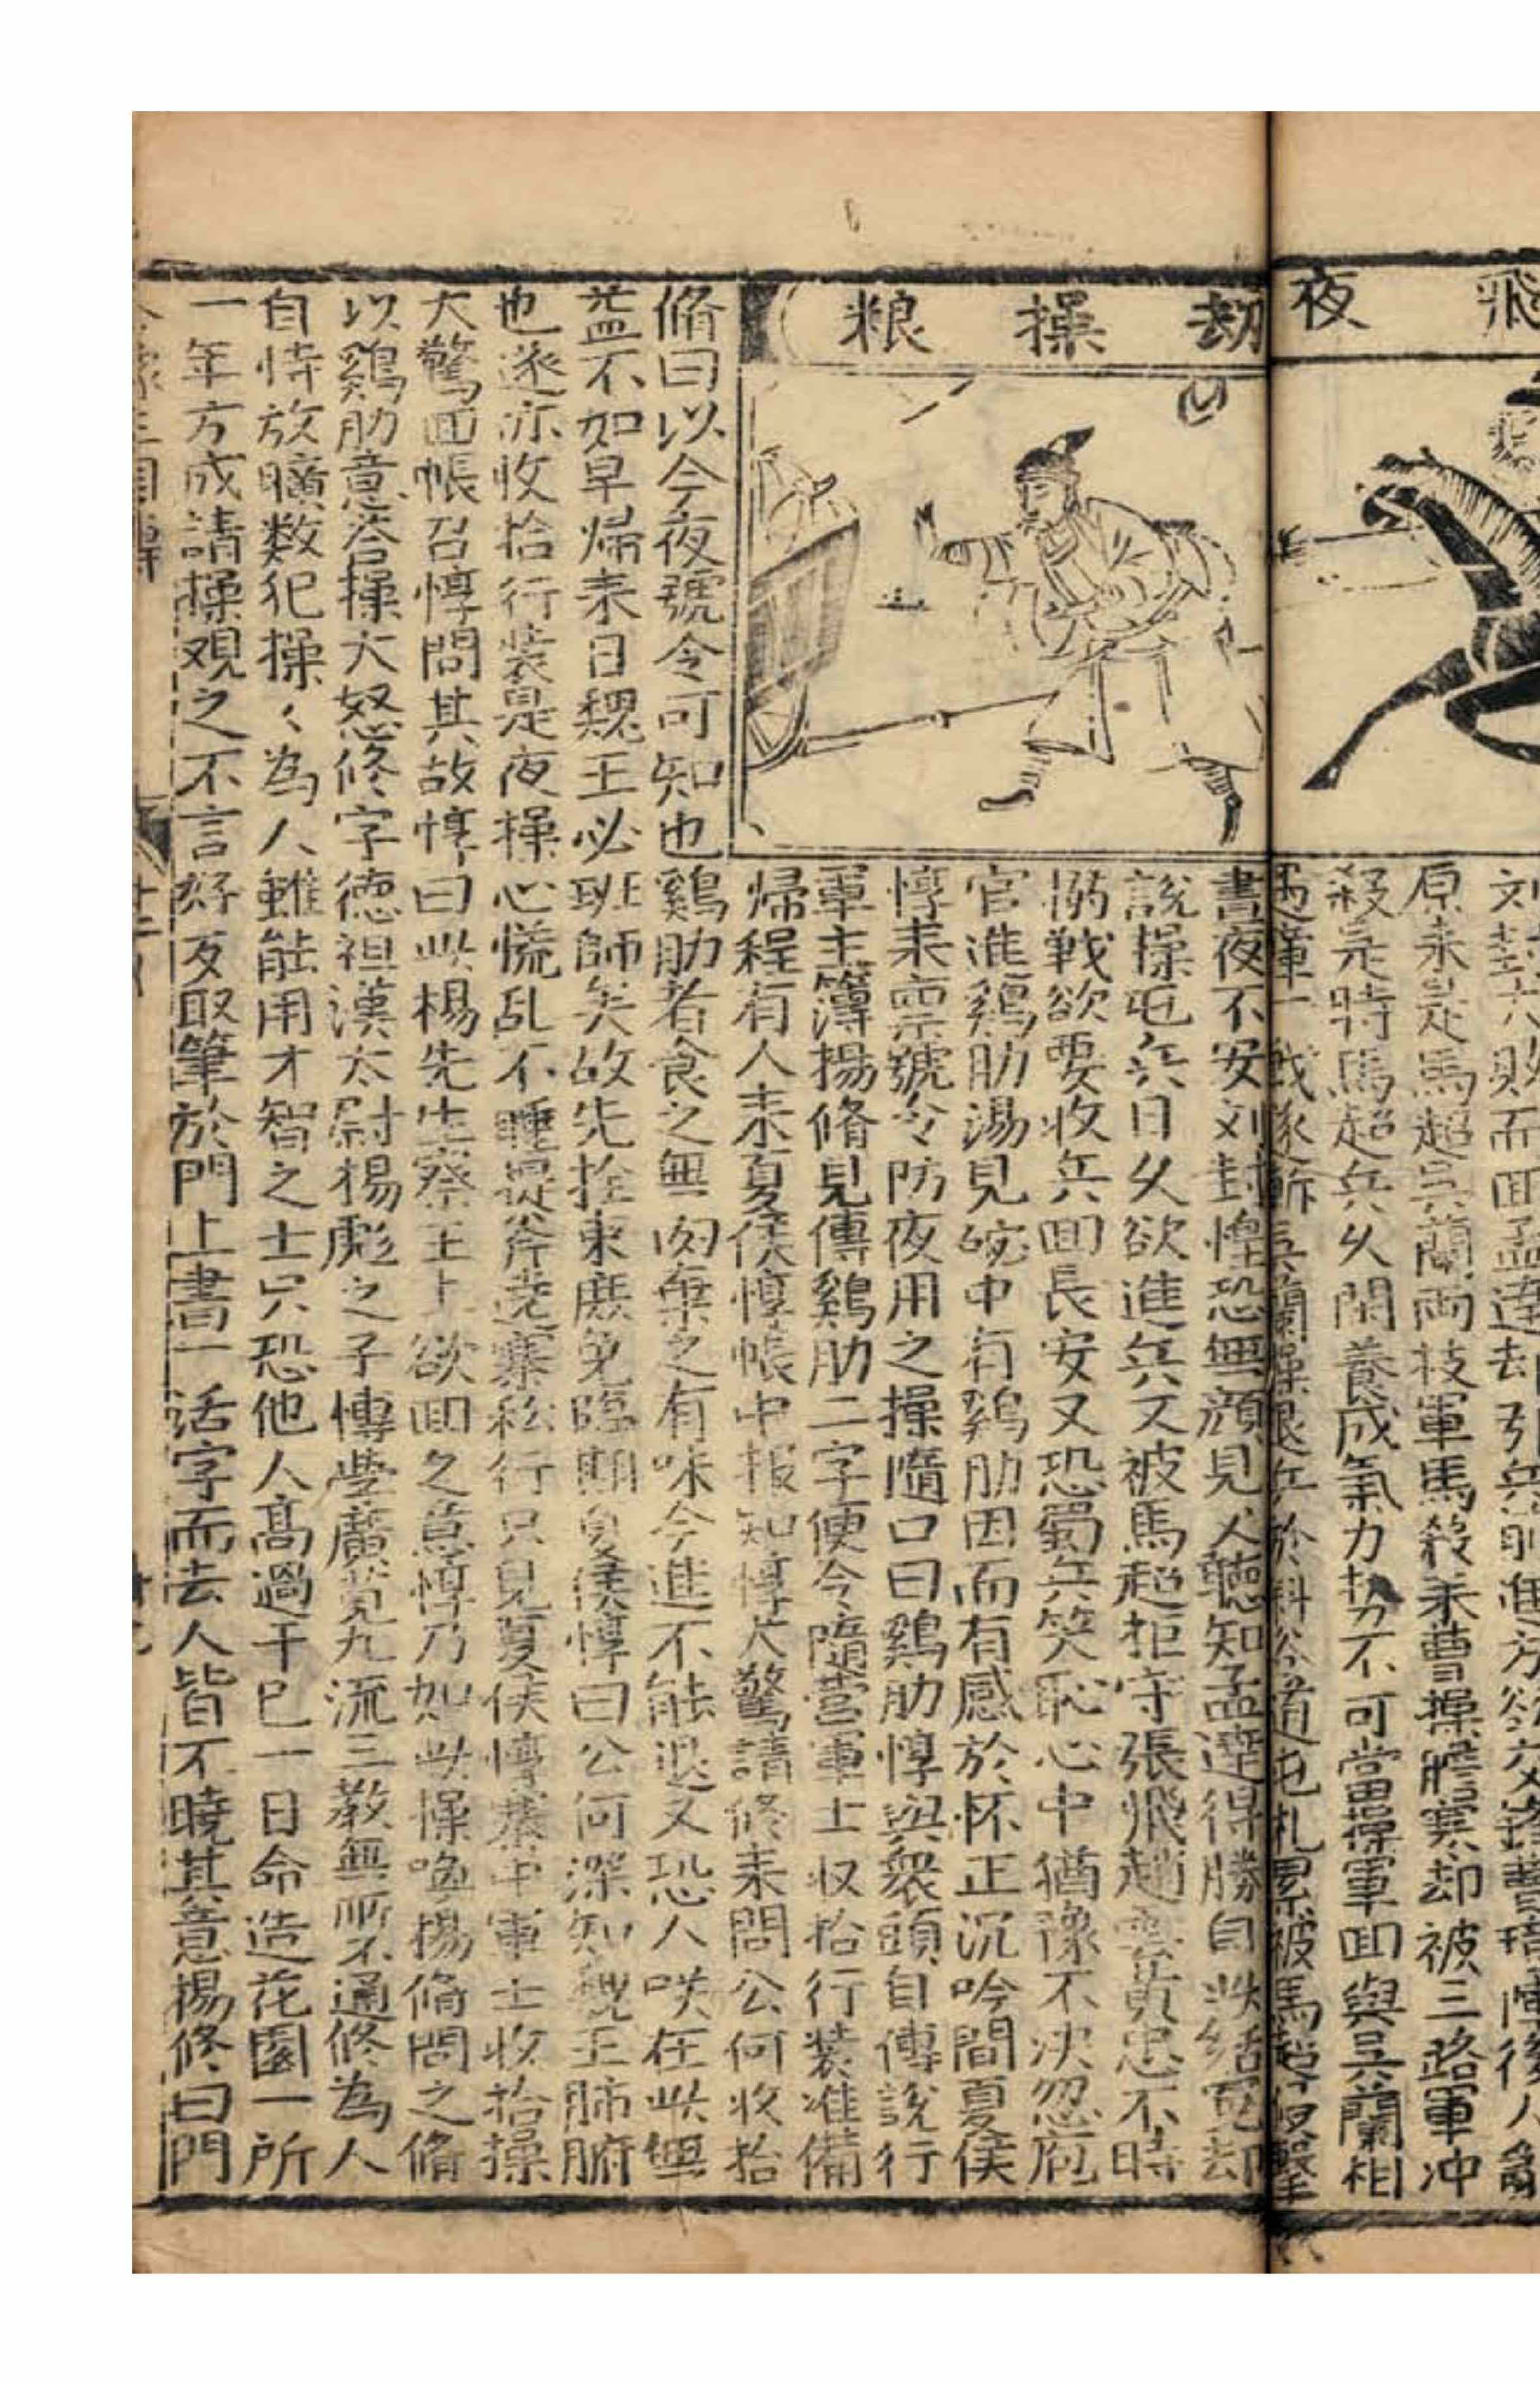 飛夜
原来是馬超吳蘭兩枝軍馬殺来曹操膽寒却被三路軍冲
殺完時馬超兵久閑養成氣力 不可當操軍回與吳蘭相
遇軍一戰 斬吳蘭操退兵於斜谷道屯札累被馬超 擊
劫操粮
晝夜不安刘封惶恐無顔見人聽知孟達得勝自迯 却
說操屯兵日久欲進兵又被馬超拒守張飛趙雲黃忠不時
搦戰欲要收兵回長安又恐蜀兵笑恥心中猶豫不决忽庖
官進鷄肋湯見碗中有鷄肋因而有感於怀正沉吟間夏侯
惇来禀號令防夜用之操隨口曰鷄肋惇與衆頭目傳說行
軍主簿揚脩見傳鷄肋二字便令隨營軍士収拾行装准備
歸程有人来夏侯惇帳中报知惇大驚請修来問公何收拾
脩曰以今夜號令可知也鷄肋者食之無肉棄之有味今進不能退又恐人咲在此無
益不如早歸来日魏王必班師矣故先拴束庶免臨期夏侯惇曰公何深知魏王肺腑
也遂亦收拾行装是夜操心慌乱不睡提斧遶寨私行只見夏侯惇寨中軍士收拾操
大驚回帳召惇問其故惇曰此楊先生察王上欲回之意惇乃如此操喚楊脩問之脩
以鷄肋意答操大怒修字德祖漢太尉楊彪之子博學廣覽九流三教無所不通修為人
自恃放曠数犯操〻為人雖能用才智之士只恐他人髙過于已一日命造花園一所
一年方成請操观之不言好歹取筆於門上書一活字而去人皆不曉其意楊修曰門